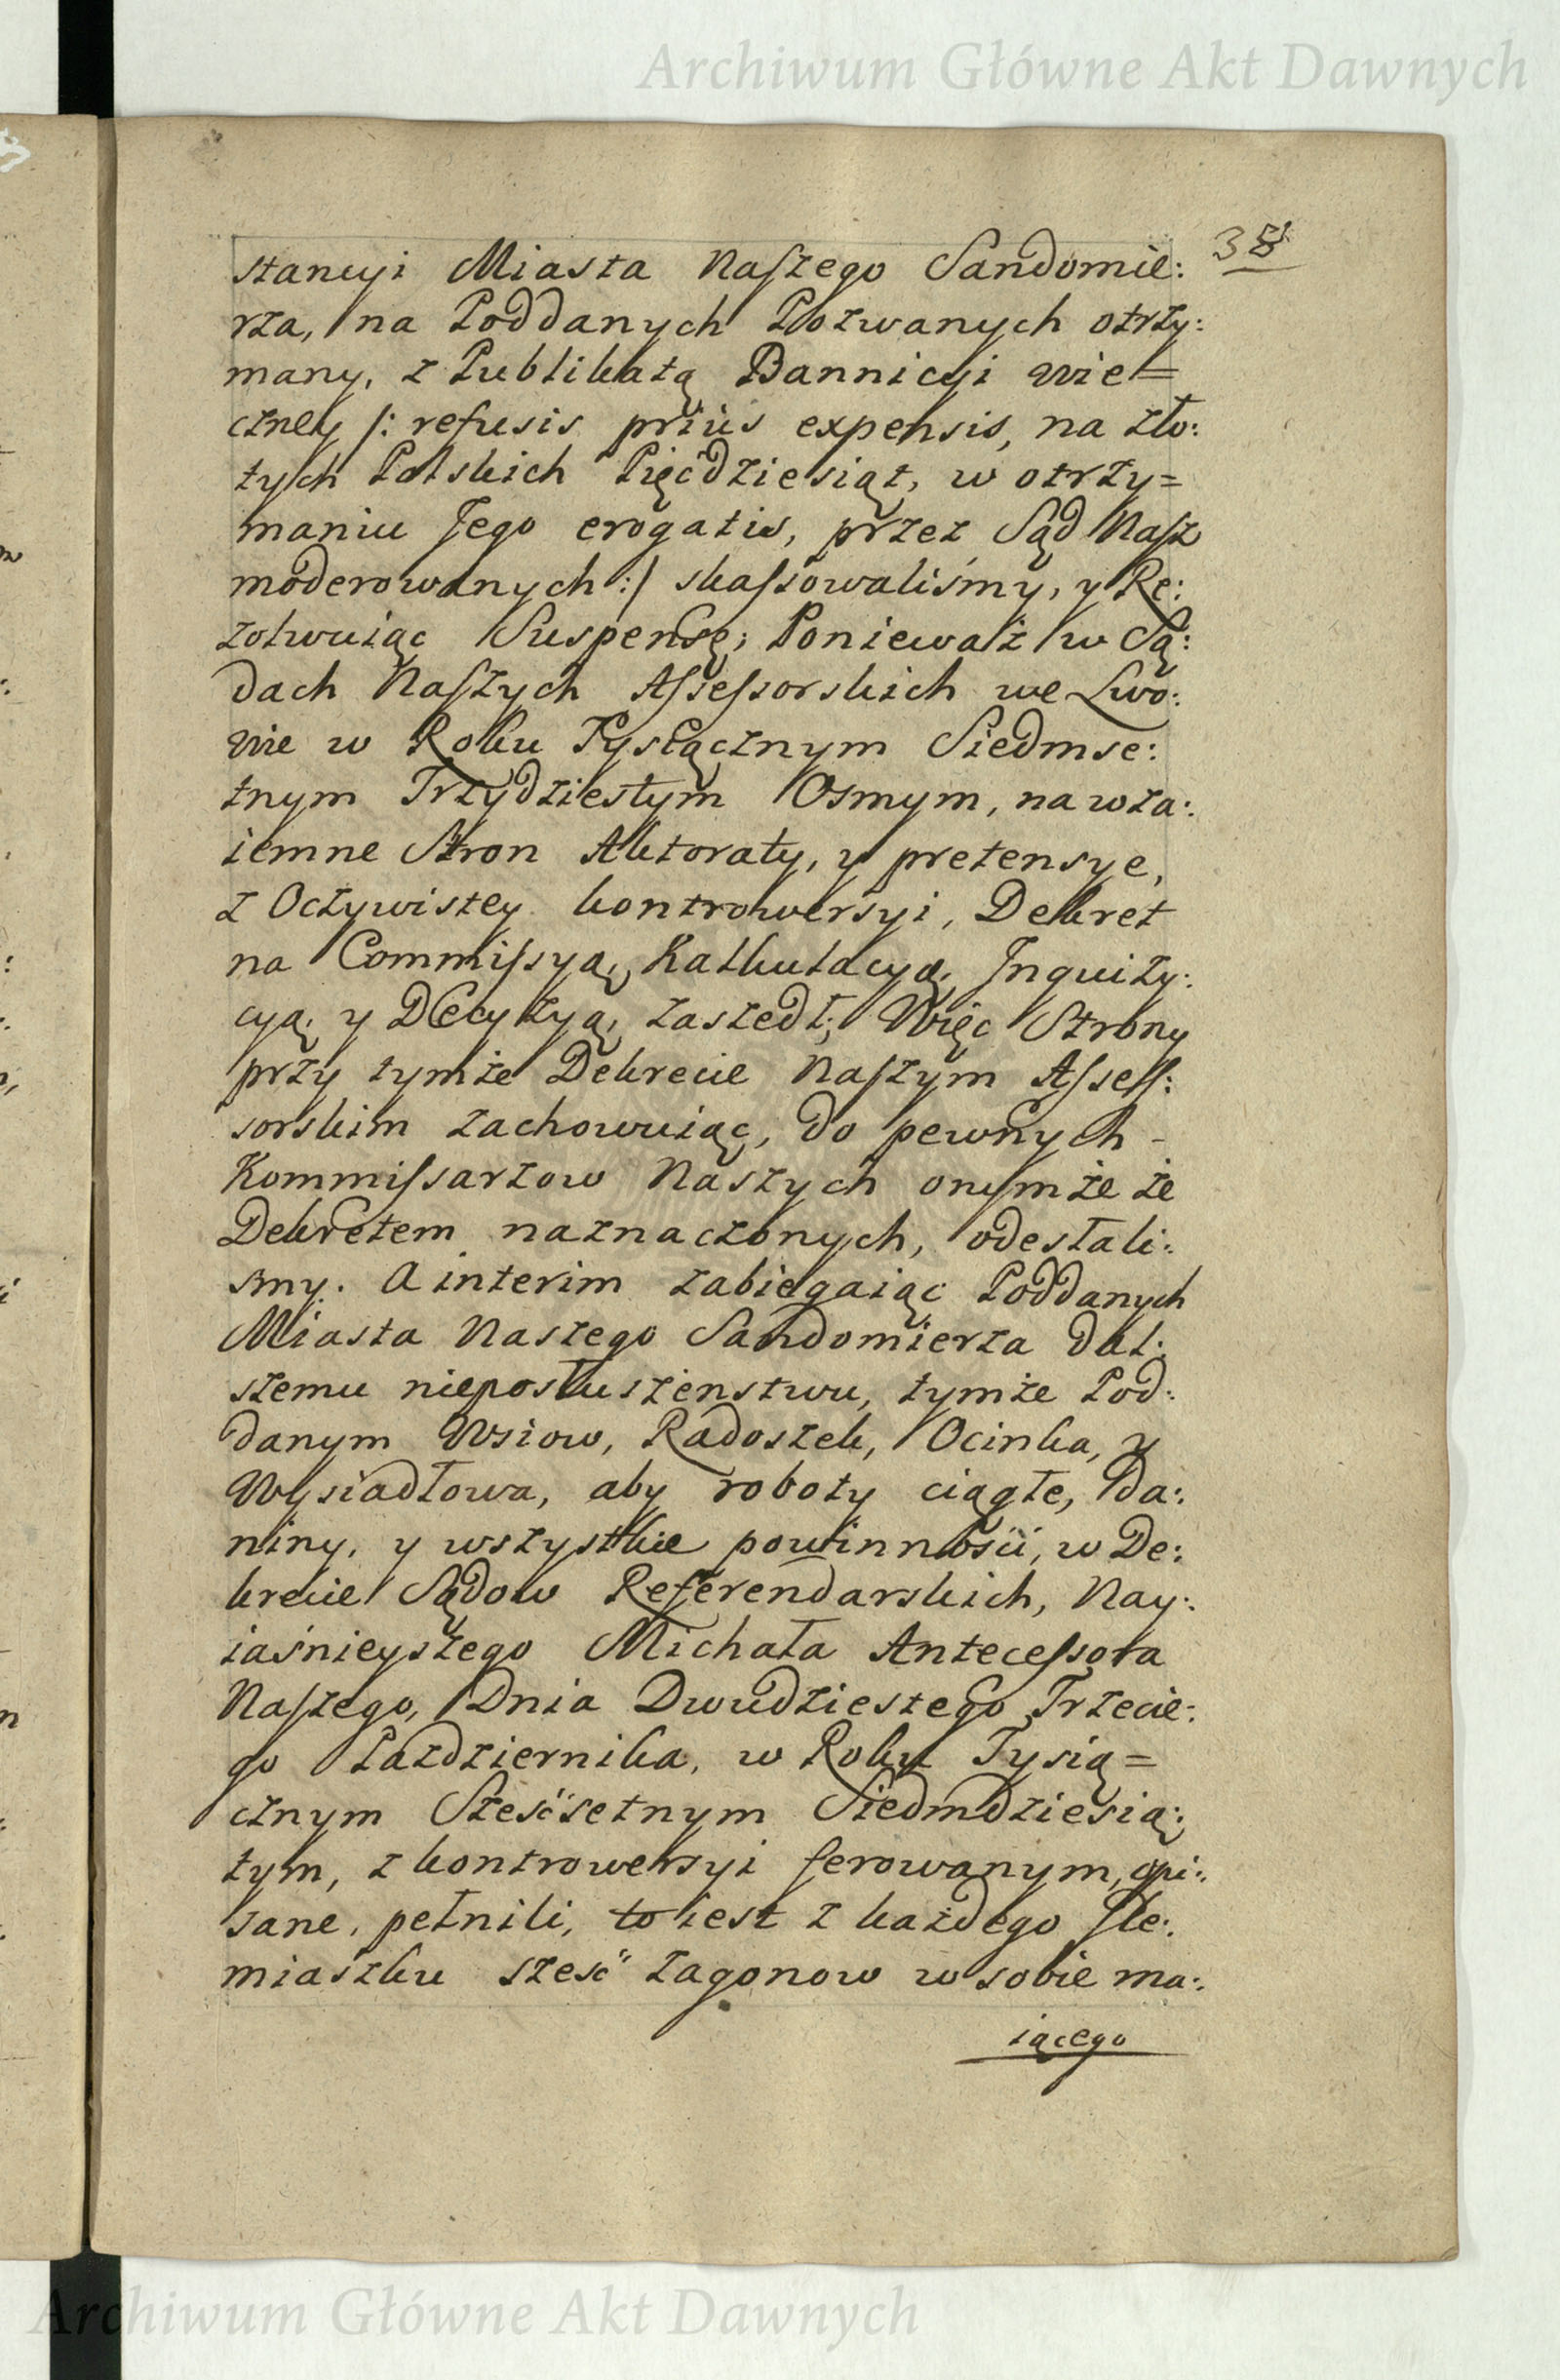 Archiwum Główne Akt Dawnych
stancyi Miasta Naszego Sandomie:
rza, na Poddanych Pozwanych otrzy:
many, z Publikatą Bannicyi wie=
czney /: refusis prius expensis, na zło:
tych Polskich Pięćdziesiąt, w otrzy=
maniu Jego erogatis, przez Sąd Nasz
moderowanych :/ skassowaliśmy, y Re:
zolwuiąc Suspensę; Ponieważ w Są:
dach Naszych Assessorskich we Lwo:
wie w Roku Tysiącznym Siedmse:
tnym Trzydziestym Osmym, na wza:
iemne Stron Aktoraty, y pretensye,
z Oczywistey kontrowersyi, Dekret
na Commissyą, Kalkulacyą, Inquizy:
cyą, y Decyzyą, zaszedł; Więc Strony
przy tymże Dekrecie Naszym Assess:
sorskim zachowuiąc, do pewnych -
Kommissarzow Naszych onymże że
Dekretem naznaczonych, odesłali:
smy. A interim zabiegaiąc Poddanych
Miasta Naszego Sandomierza dal:
szemu nieposłuszenstwu, tymże Pod:
danym Wsiow, Radoszek, Ocinka, y
Wysiadłowa, aby roboty ciągłe, Da:
niny, y wszystkie powinności, w De:
krecie Sądow Referendarskich, Nay:
iaśnieyszego Michała Antecessora
Naszego, Dnia Dwudziestego Trzecie:
go Pazdziernika, w Roku Tysią=
cznym Sześćsetnym Siedmdziesią:
tym, z kontrowersyi ferowanym, opi:
sane, pełnili, to iest z każdego Sle:
miaszku sześć zagonow w sobie ma:
iącego
Archiwum Główne Akt Dawnych